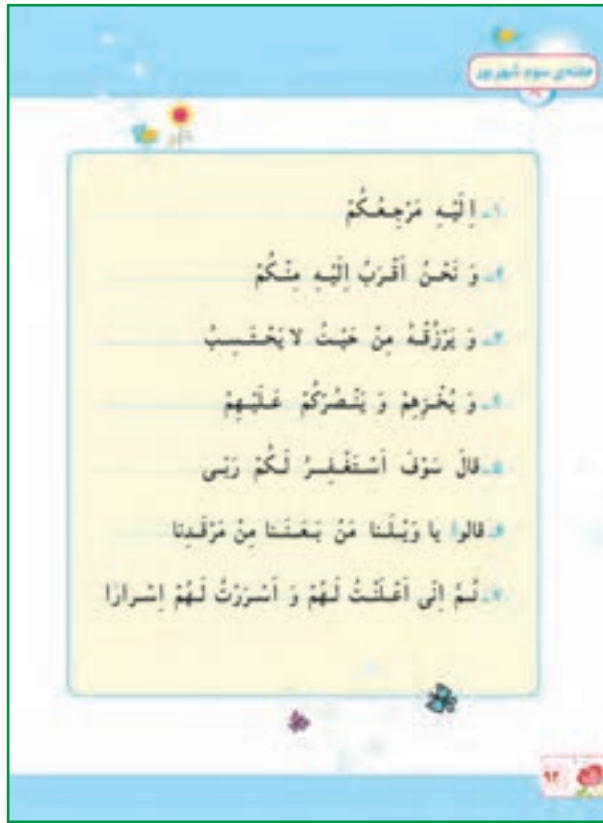 هفته‌ی سوم شهریور
۱ـ اِلَیْهِ مَرْجِعُکُمْ
۲ـ وَ نَحْنُ اَقْرَبُ اِلَیْهِ مِنْکُمْ
۳ـ وَ یَرْزُقْهُ مِنْ حَیْثُ لا یَحْتَسِبُ
۴ـ وَ یُخْزِهِمْ وَ یَنْصُرْکُمْ عَلَیْهِمْ
۵ـ قالَ سَوْفَ اَسْتَغْفِرُ لَکُمْ رَبّی
۶ـ قالوا یا وَیْلَنا مَنْ بَعَثَنا مِنْ مَرْقَدِنا
۷ـ ثُمَّ اِنّی اَعْلَنْتُ لَهُمْ وَ اَسْرَرْتُ لَهُمْ اِسْرارًا
۹۲